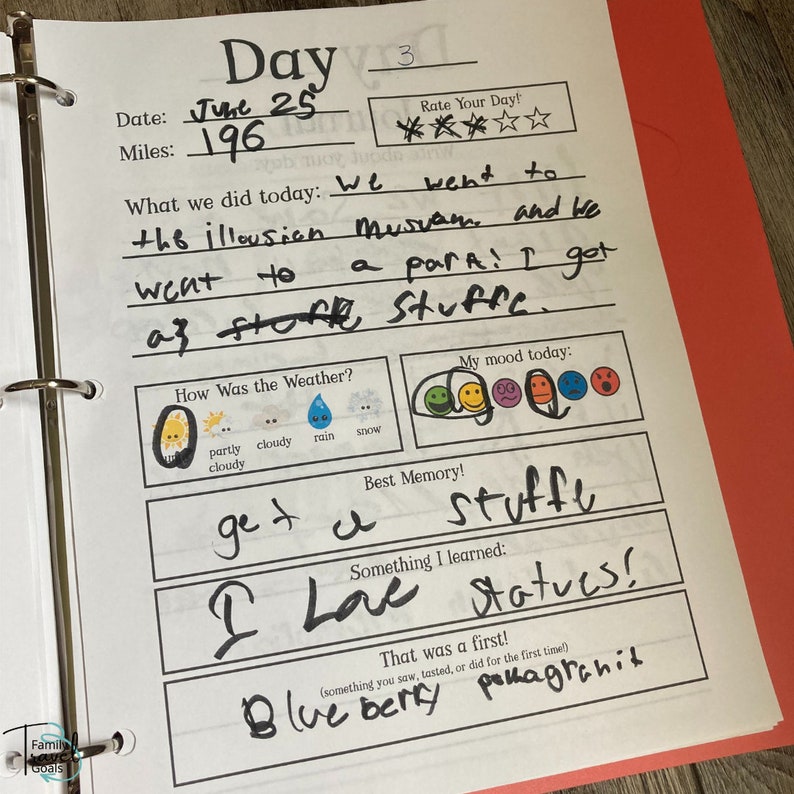 Day 3
Date: June 25
Miles: 196
Rate Your Day!
What we did today: We went to
the illousion Museuam. and we
went to a park! I got
a stuffe stuffe.
How Was the Weather?
sunny
partly cloudy
cloudy
rain
snow
My mood today:
Best Memory!
get a stuffe
Something I learned:
I Love statues!
That was a first!
(something you saw, tasted, or did for the first time!)
Blueberry pomagranit
Family
Travel
Goals